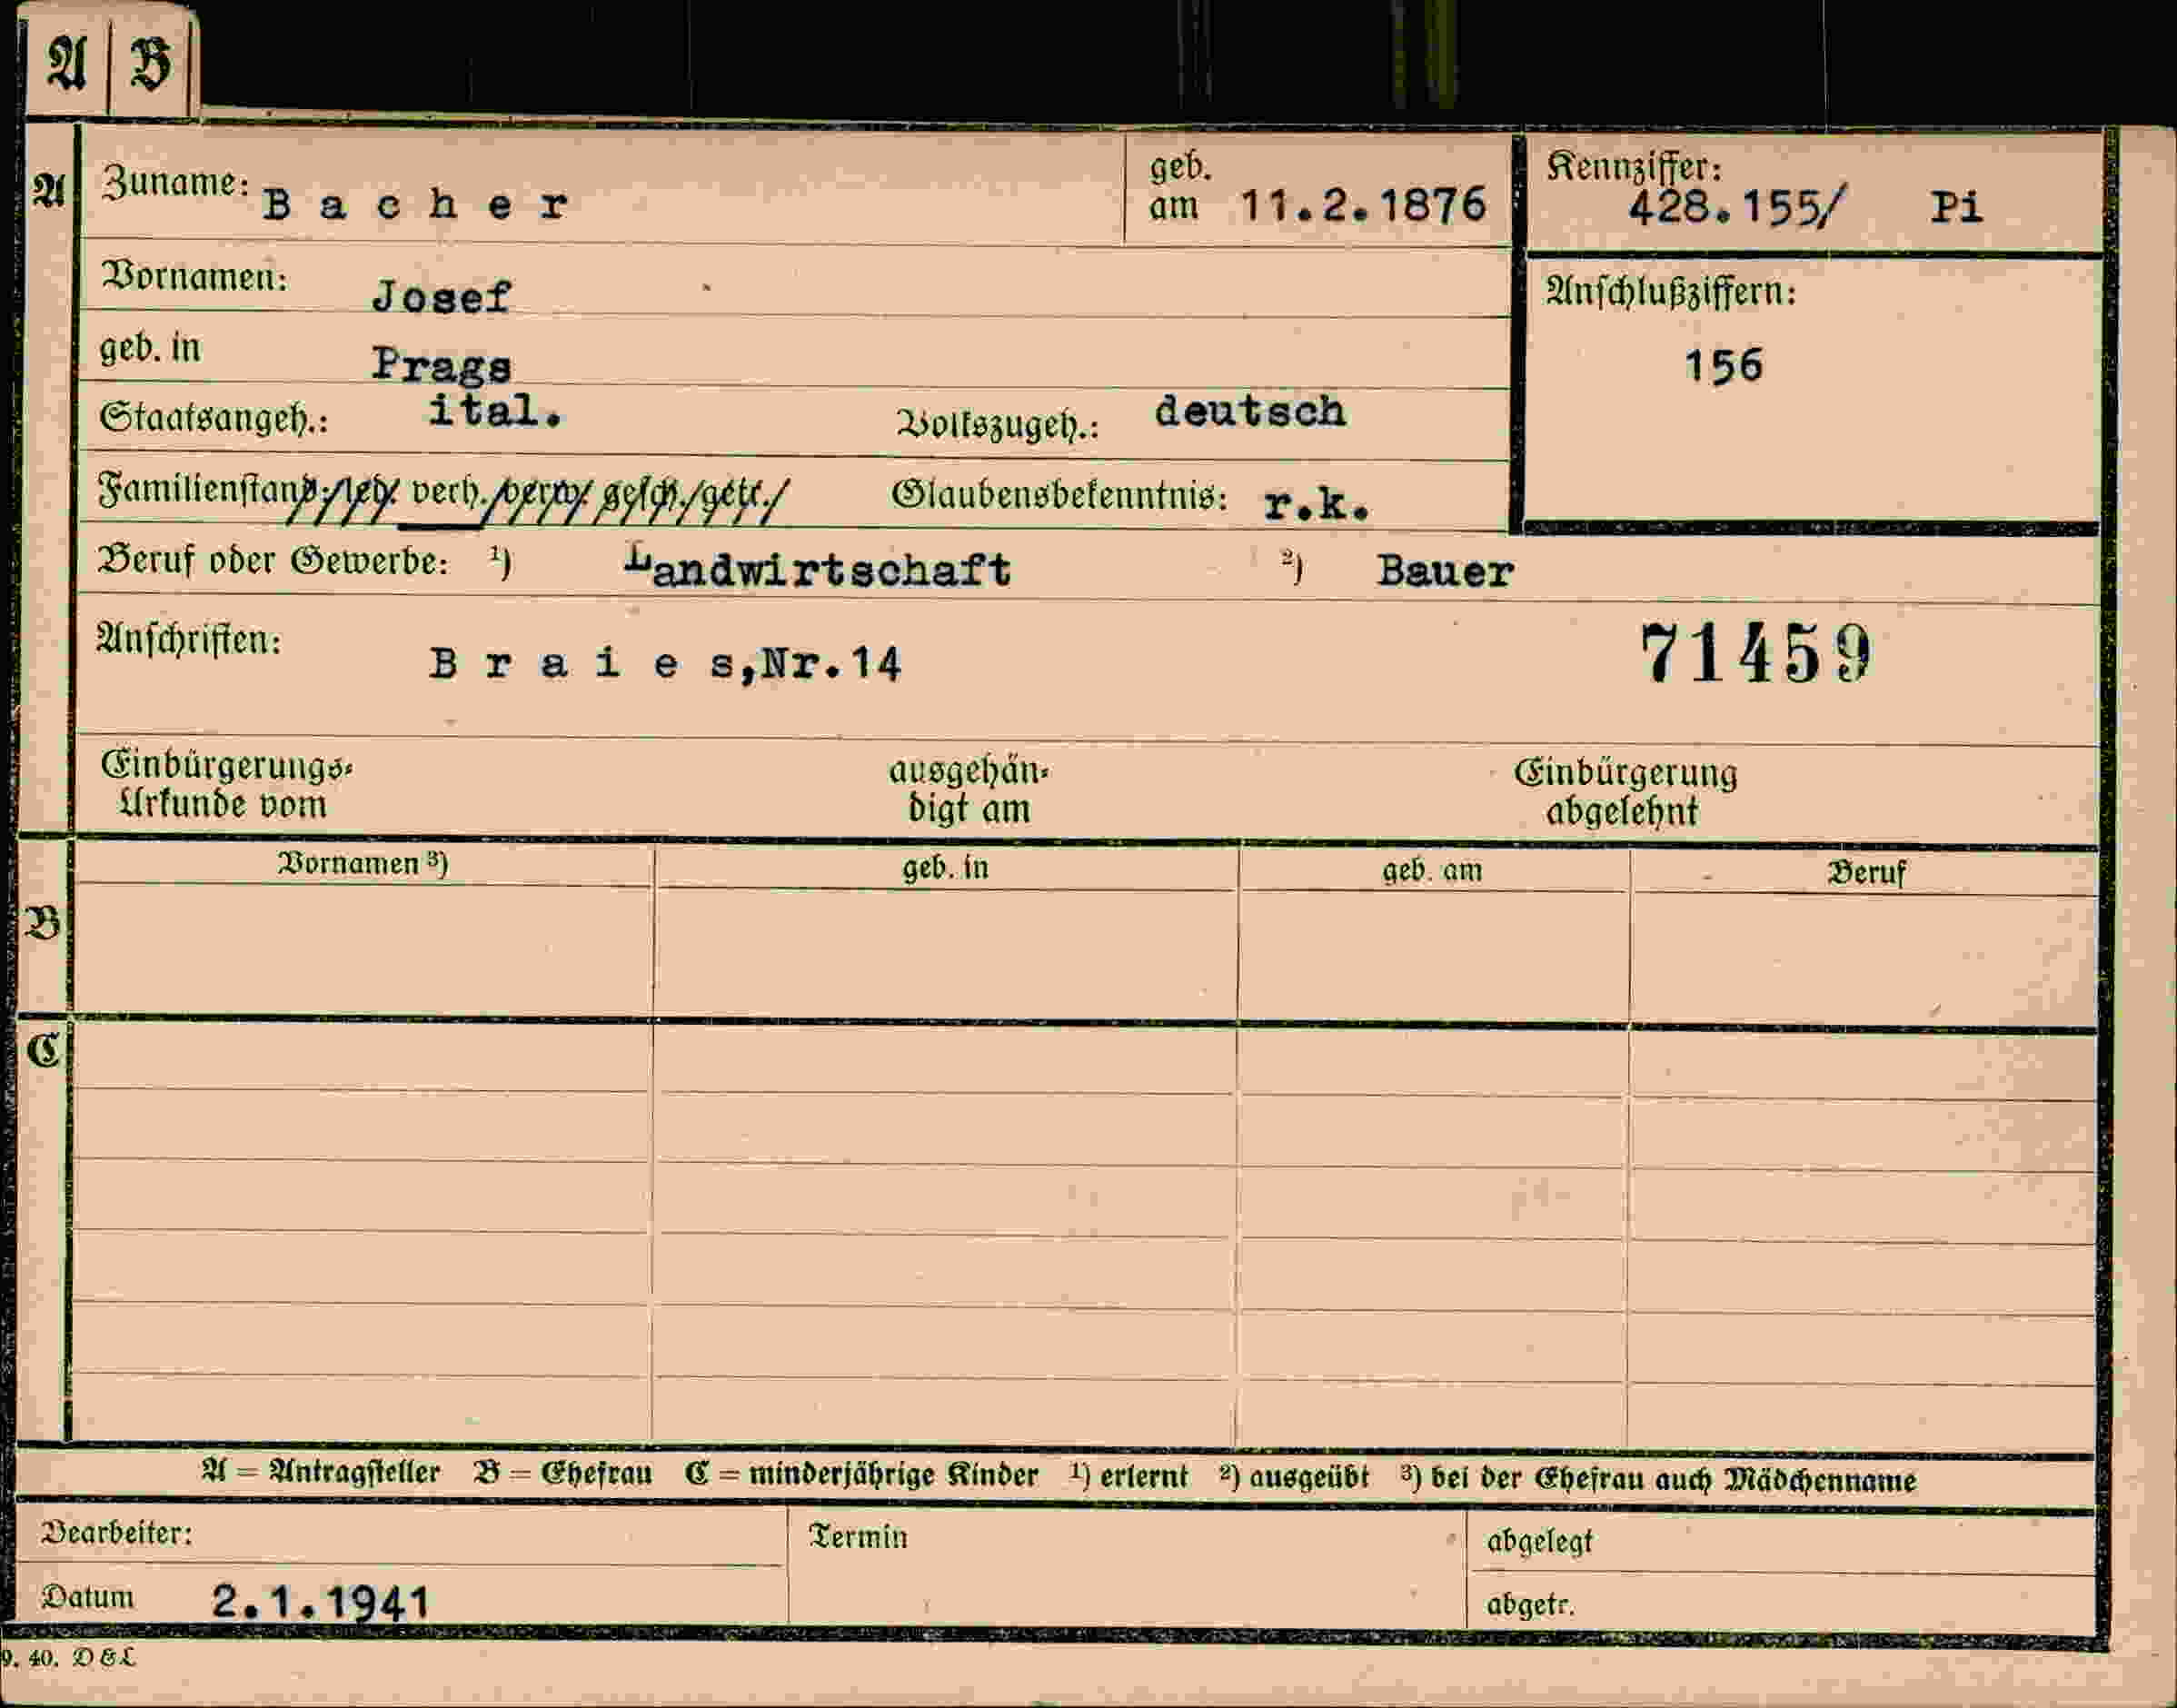 A B
A Zuname: Bacher geb. am 11.2.1876 Kennziffer: 428.155/ Pi
Vornamen: Josef
Anschlußziffern:
geb. in Prags 156
Staatsangeh.: ital. Volkszugeh.: deutsch
Familienstand: led. verh. verw. gesch. getr. Glaubensbekenntnis: r.k.
Beruf oder Gewerbe: ¹) Landwirtschaft ²) Bauer
Anschriften: Braies, Nr. 14 71459
Einbürgerungs- ausgehän- Einbürgerung
Urkunde vom digt am abgelehnt
Vornamen ³) geb. in geb. am Beruf
B
C
A = Antragsteller B = Ehefrau C = minderjährige Kinder ¹) erlernt ²) ausgeübt ³) bei der Ehefrau auch Mädchenname
Bearbeiter: Termin abgelegt
Datum 2.1.1941 abgetr.
9. 40. D & L